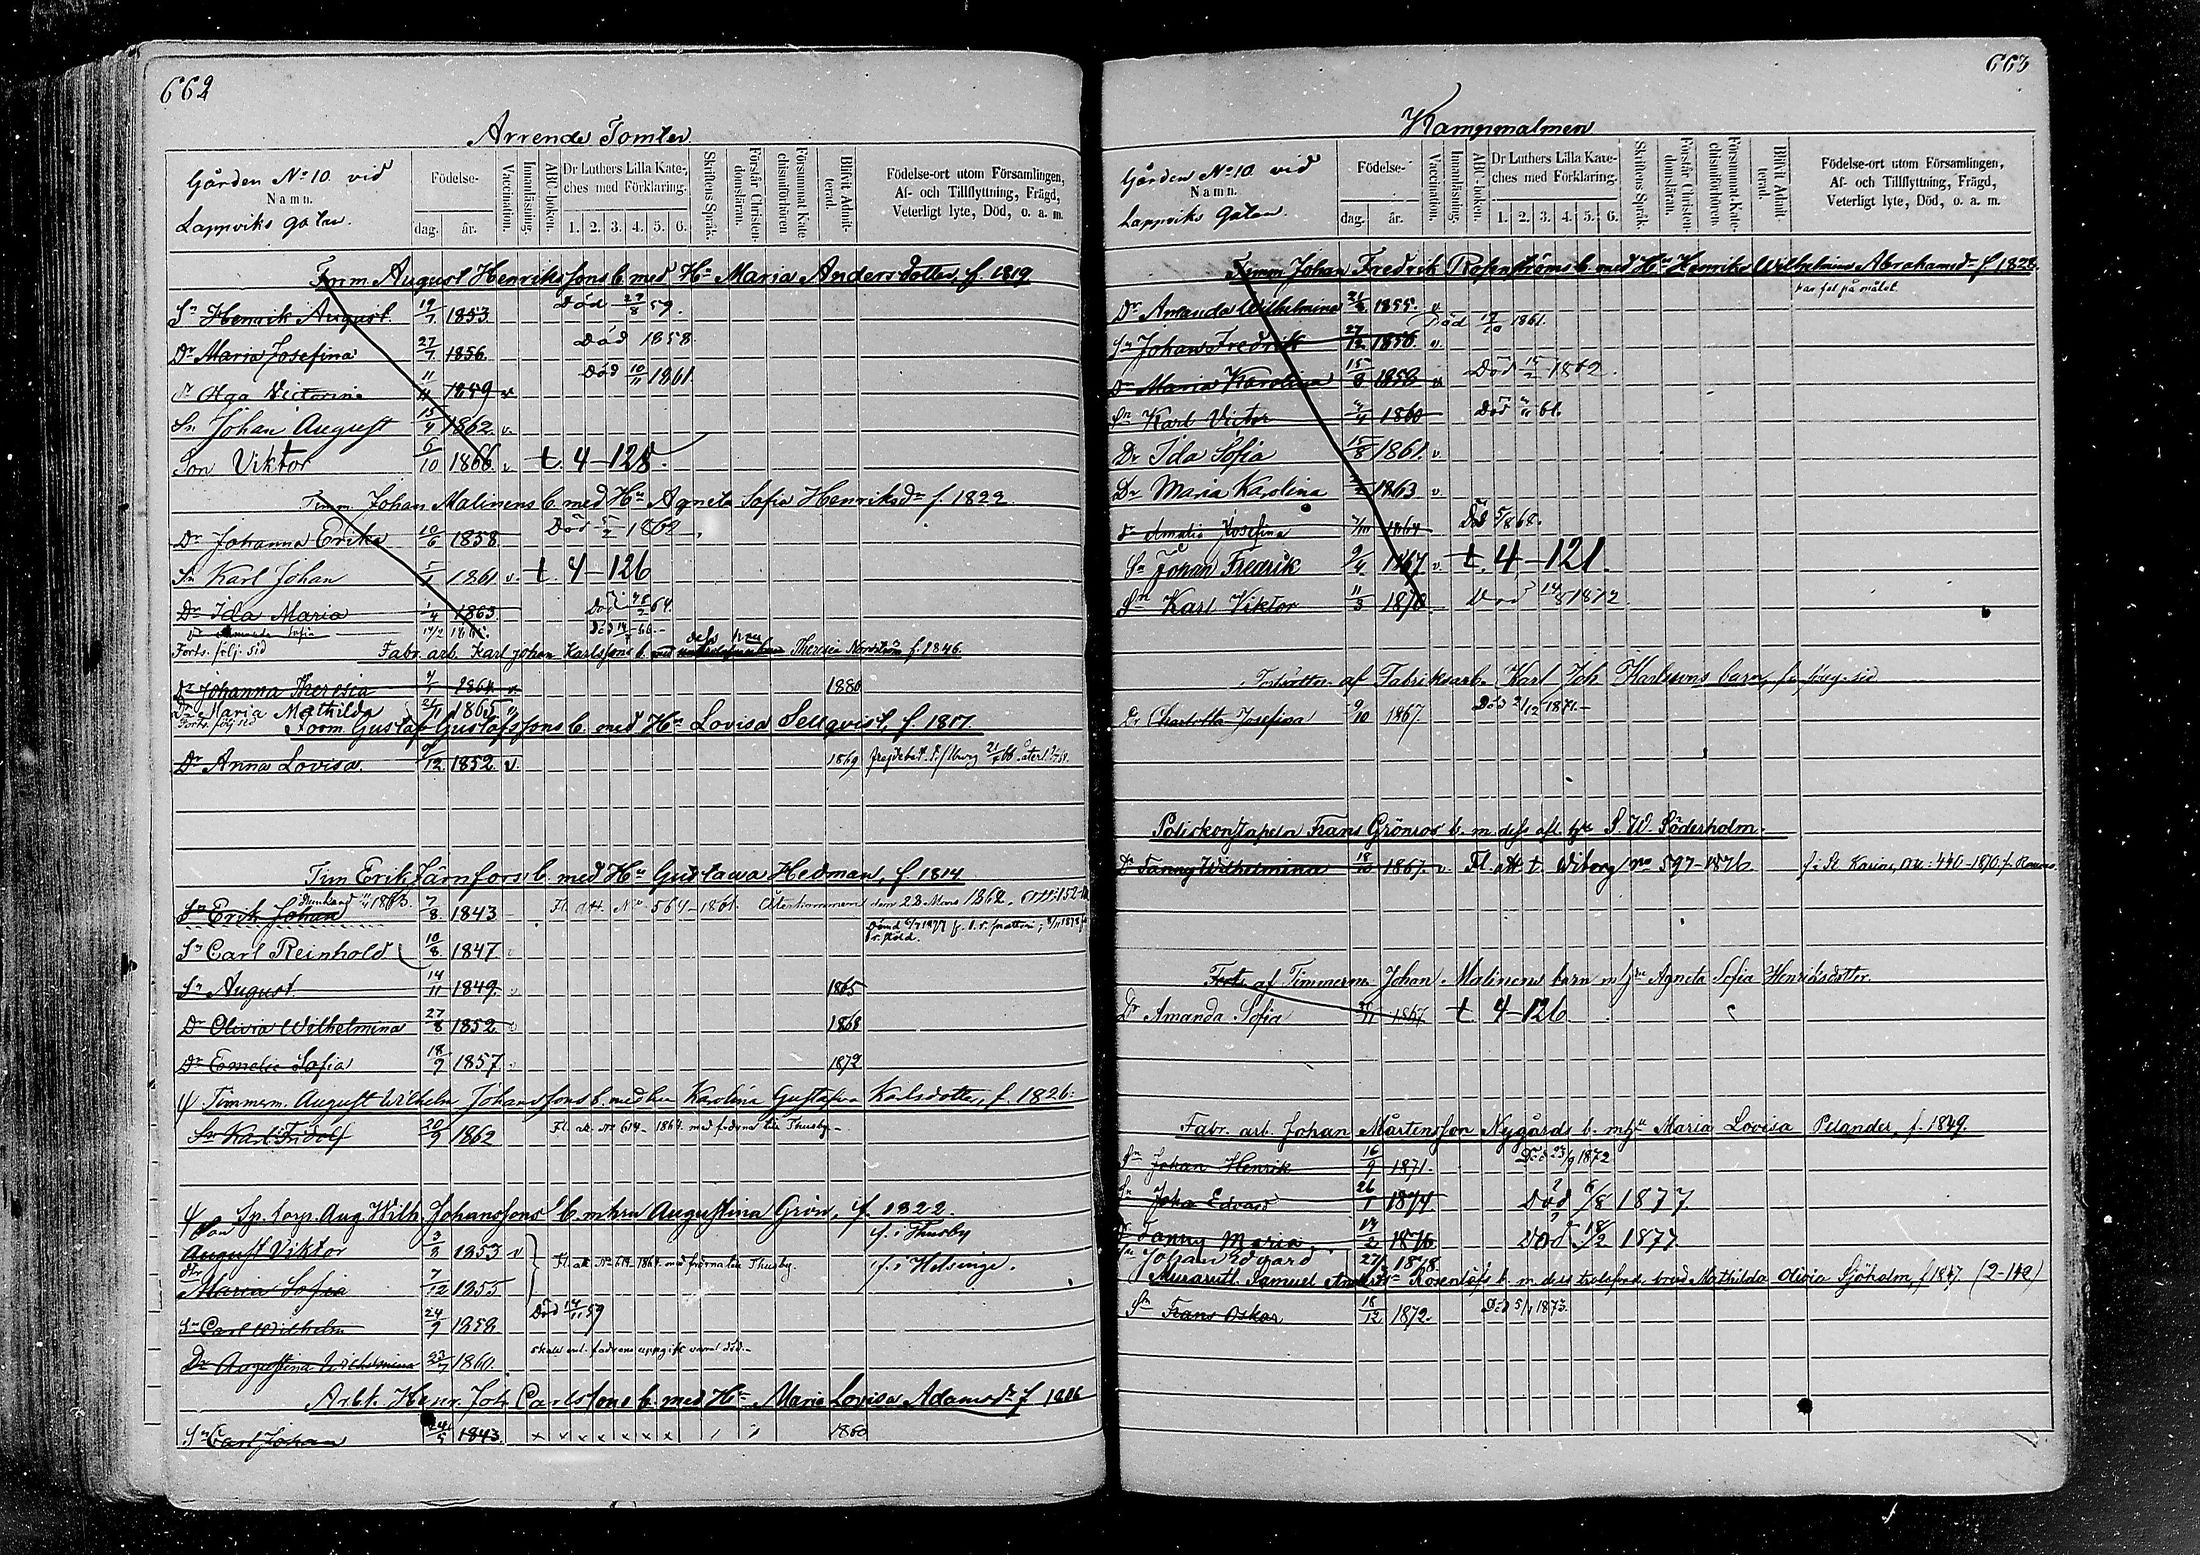 662
Arrende Tomter
Gården No 10 vid
Namn.
Lappviks gatan.
Födelse-
dag. år.
Vaccination.
Innanläsning.
ABC-boken.
Dr Luthers Lilla Kate-
ches med Förklaring.
1. 2. 3. 4. 5. 6.
Skriftens Språk.
Förstår Christen-
domsläran.
Försummat Kate-
chismiförhören
Blifvit Admit-
terad.
Födelse-ort utom Församlingen,
Af- och Tillflyttning, Frägd,
Veterligt lyte, Död, o. a. m.
Timm. August Henrikssons b. med Hu Maria Andersdotter, f. 1819
Sn Henrik August. 19/7 1853. Död 27/8 59.
Dr Maria Josefina 27/7 1856. Död 1858
Dr Olga Victorina 11/11 1859 v Död 10/11 1861.
Sn Johan August 15/4 1862. v.
Son Viktor 6/10 1866 v t. 4-125.
Timm. Johan Malinens b. med Hu Agneta Sofia Henriksdr f. 1822.
Dr Johanna Erika 10/6 1858 Död 5/2 1862.
Sn Karl Johan 1861 v. t. 4-126
Dr Ida Maria 1/4 1863 Död 64.
Dr Amanda Sofia
Forts. följ. sid
Fabr. arb. Karl Johan Karlssons b. Theresia Nordström f. 1846.
Dr Johanna Theresia 1864 v. 1880
Dr Maria Mathilda 1865 v
Forts. följ. sid
Gustaf Gustafssons b. med Hu Lovisa Sellqvist, f. 1817
Dr Anna Lovisa. /12 1852. v. 1869
Tim Erik Järnfors b. med Hu Gustawa Hedman, f 1814
Sn Erik Johan 7/8 1843 Fl. att. No 564-1861. Återkommen den 23 Mars 1862.
Sn Carl Reinhold 10/8 1847
Sn August. 14/11 1849. v 1865
Dr Olivia Wilhelmina 27/8 1852 1868
Dr Emelie Sofia 18/9 1857. 1872
Timmerm. August Wilhelm Johanssons b. med hu Karolina Gustafva Karlsdotter, f. 1826.
Sn Karl Fridolf 20/9 1862 Fl. att. No 614-1864. med fadren till Thusby.
Sp. Corp. Aug. Wilh. Johanssons b. m hu Augustina Grön, f. 1822.
Son
August Viktor 3/3 1853 v f. i Thusby
Fl. att. No 614-1864. med fadren till Thusby.
Dtr
Maria Sofia 7/12 1855 f. i Helsinge.
Sn Carl Wilhelm 24/9 1858 Död 14/11 59
Dr Augustina Wilhelmina 23/7 1860. skall enl. fadrens uppgift vara död.
Arbt. Henr. Joh. Carlssons b. med Hu Maria Lovisa Adamsdr f 1806
Sn Carl Johan 1843. x x x x x x x 1860
663
Kampmalmen
Gården No 10. vid
Namn.
Lappviks Gatan.
Födelse-
dag. år.
Vaccination.
Innanläsning.
ABC-boken.
Dr Luthers Lilla Kate-
ches med Förklaring.
1. 2. 3. 4. 5. 6.
Skriftens Språk.
Förstår Christen-
domsläran.
Försummat Kate-
chismiförhören.
Blifvit Admit-
terad.
Födelse-ort utom Församlingen,
Af- och Tillflyttning, Frägd,
Veterligt lyte, Död, o. a. m.
Timm Johan Fredrik Rosenströms b. med Hu Henrika Wilhelmina Abrahamsdr f 1828.
Dr Amanda Wilhelmina 1855. v har fel på målet.
Sn Johan Fredrik 27/12 1856. v Död 17/10 1861.
Dr Maria Karolina 15/8 1858 v Död 15/2 1862.
Sn Karl Victor 1860 Död 61.
Dr Ida Sofia 15/8 1861. v.
Dr Maria Karolina 1863 v.
Dr Amalia Josefina 1864 Död 5/8 68.
Sn Johan Fredrik 9/4 1867. v. t. 4-121.
Sn Karl Viktor 11/3 1870. Död 14/8 1872
Fortsättn. af Fabriksarb. Karl Joh Karlssons barn, f. föreg. sid
Dr Charlotta Josefina 9/10 1867. Död 2/12 1871.
Poliskonstapeln Frans Grönroos b. m. dess afl. hu S. W. Söderholm.
Dr Fanny Wilhelmina 18/10 1867. v. Fl. att. t. Wiborg No 597-1876 f. i St. Karins,
Forts. af Timmerm. Johan Malinens barn m hu Agneta Sofia Henriksdotter.
Dr Amanda Sofia 1867. t. 4-126
Fabr. arb. Johan Mårtensson Nygårds b. m hu Maria Lovisa Pelander, f. 1849.
Sn Johan Henrik 16/9 1871. Död 23/9 1872
Sn Johan Edvard 26/1 1874 Död 6/8 1877.
Dr Fanny Maria 17/2 1876 Död 18/2 1877
Sn Johan Edvard 27/ 1878.
Murarutl. Samuel Rosenlöfs b. m. dess trolofvade brud Mathilda Olivia Sjöholm, f 1847. (2-142)
Sn Frans Oskar 18/12 1872. Död 5/ 1873.